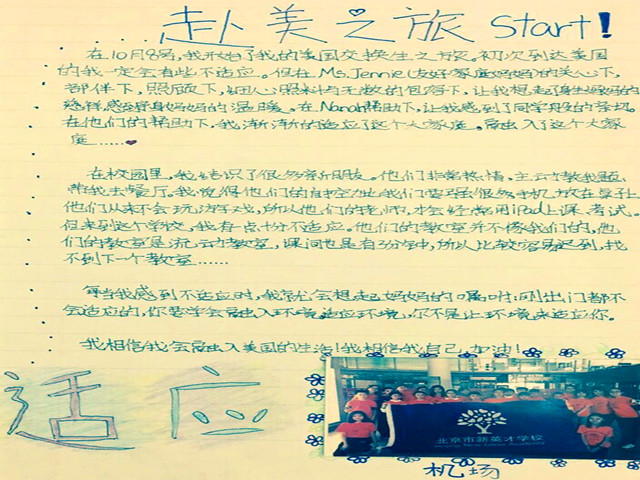 赴美之旅 Start!
在10月8号,我开始了我的美国交换生之旅。初次到达美国
的我一定会有些不适应。但在Ms.Jennie(友好家庭妈妈)的关心下,
陪伴下,照顾下,细心照料与无数的包容下,让我想起了身生妈妈的
慈祥,感觉到身妈妈的温暖。在Nanoh帮助下,让我感到了同学
在他们的帮助下,我渐渐的适应了这个大家庭。融入了这个大家
庭……
在校园里,我结识了很多新朋友。他们非常热情,主动教我题,
带我去餐厅。我觉得他们的自控力比我们要强很多手机放在桌子上
他们从来不会玩游戏,所以他们的老师,才会经常用iPad上课,考试。
但来到这个学校,我有点十分不适应。他们的教室并不像我们的,他
们的教室是流动教室,课间也是有3分钟,所以比较容易迟到,找
不到下一个教室……
每当我感到不适应时,我就会想起妈妈的嘱咐:刚出门都不
会适应的,你要学会融入环境,适应环境,尔不是让环境来适应你。
我相信我会融入美国的生活!我相信我自己,加油!
适应
北京市新英才学校
机场